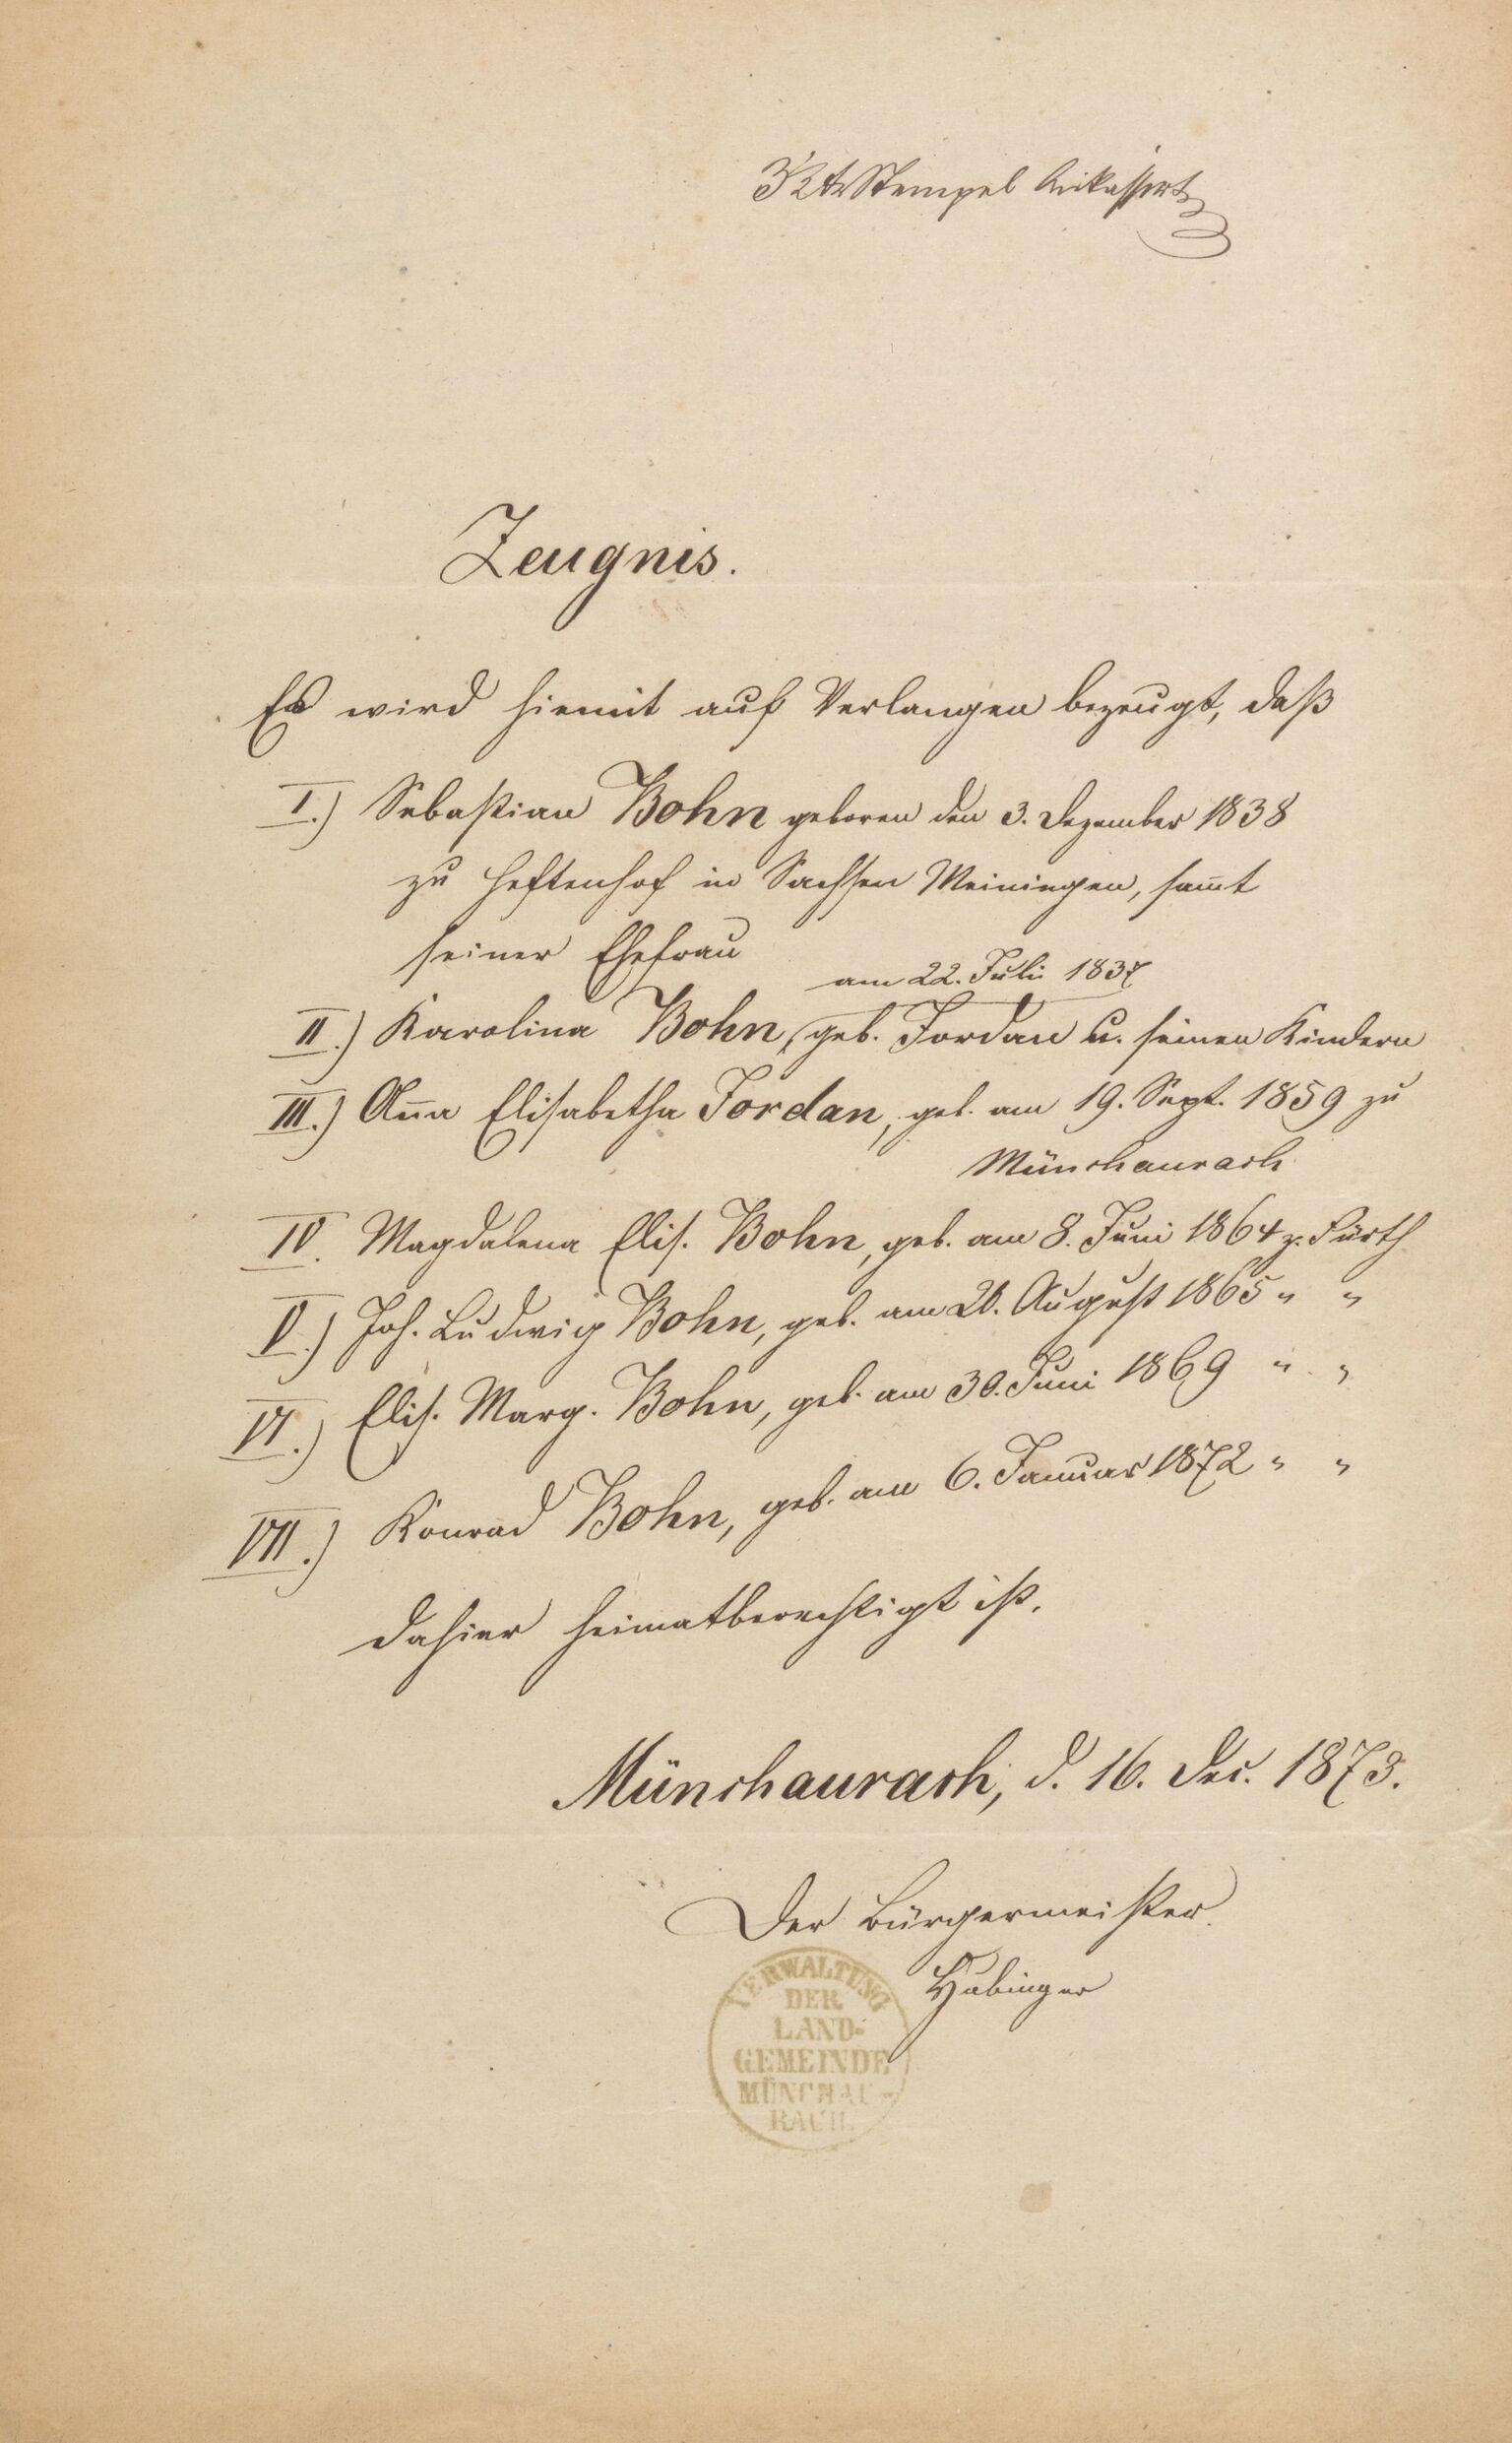 3 Kr Stempel kassirt
Zeugnis.
Es wird hiemit auf Verlangen bezeugt, daß
I.) Sebastian Bohn geboren den 3. Dezember 1838
zu Heftenhof in Sachsen Meiningen, sam̄t
seiner Ehefrau
am 22. Juli 1837
II.) Karolina Bohn, geb. Jordan u. seinen Kindern
III.) An̄a Elisabetha Jordan, geb. am 19. Sept. 1859 zu
Münchaurach
IV. Magdalena Elis. Bohn, geb. am 8. Juni 1864 z. Fürth
V.) Joh. Ludwig Bohn, geb. am 28. August 1865 " "
VI.) Elis. Marg. Bohn, geb. am 30. Juni 1869 " "
VII.) Konrad Bohn, geb. am 6. Januar 1872 " "
dahier heimatberechtigt ist.
Münchaurach, d. 16. Dec. 1873.
Der Bürgermeister.
Hubinger
VERWALTUNG
DER
LAND-
GEMEINDE
MÜNCHAU-
RACH.